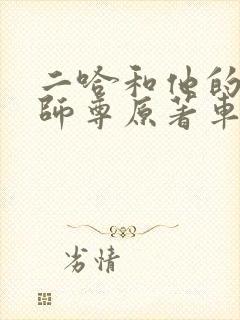 二哈和他的
師尊原著車
劣情